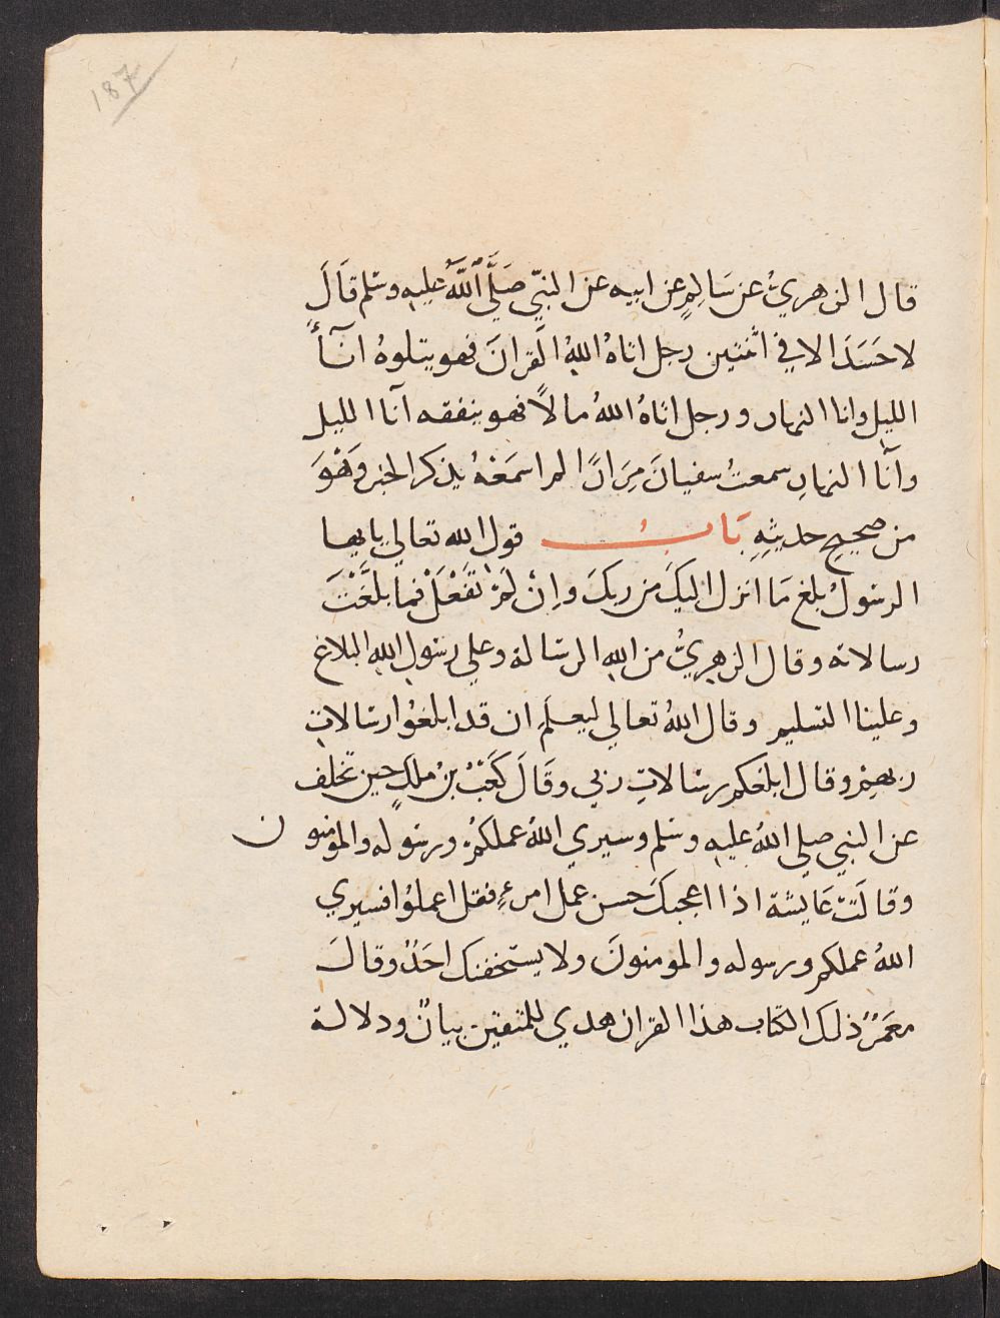 187
قال الزهريُ عن سَالِمٍ عن ابيه عن النبيّ صَلَّي اللَّهُ عليه وسَلم قَالَ
لا حَسَدَ الا في اثنتين رجل اتاهُ اللهُ القرانَ فهو يتلوهُ انآءَ
الليل وانا النهار ورجل اتاهُ اللهُ مالاً فهو ينفقه آنا الليل
وآنا النهارِ سمعتُ سفيانَ مِرَارًا لم اسمَعْهُ يذكر الخبر وَهْوَ
من صحيحِ حديثِهِ بَابُ قول الله تعالي يايها
الرسُولُ بلغ مَا انزل اليكَ من ربكَ وان لَمْ تَفْعَلْ فما بلَّغْتَ
رسالاته وقال الزهريُّ من اللهِ الرسَالة وعلي رسُولِ اللهِ البلاغ
وعلينا التسليم وقال اللهُ تعالي ليعلَمَ ان قد ابلغوْا رسَالاتِ
ربهِمْ وقال ابلغكم رسَالاتِ ربي وقَالَ كَعْبُ بنُ ملكٍ حين تخلف
عن النبي صلي اللهُ عليه وسَلم وسيري اللهُ عملكُمْ ورسُوله والمؤمنون
وقالَتْ عَايشة اذا اعجبكَ حسن عمل امرءٍ فقل اعملوْا فسيري
اللهُ عملكم ورسوله والمومنونَ ولا يستخفنك احَدٌ وقالَ
معمَرٌ ذلك الكتاب هذا القران هدي للمتقين بيانٌ ودلالة